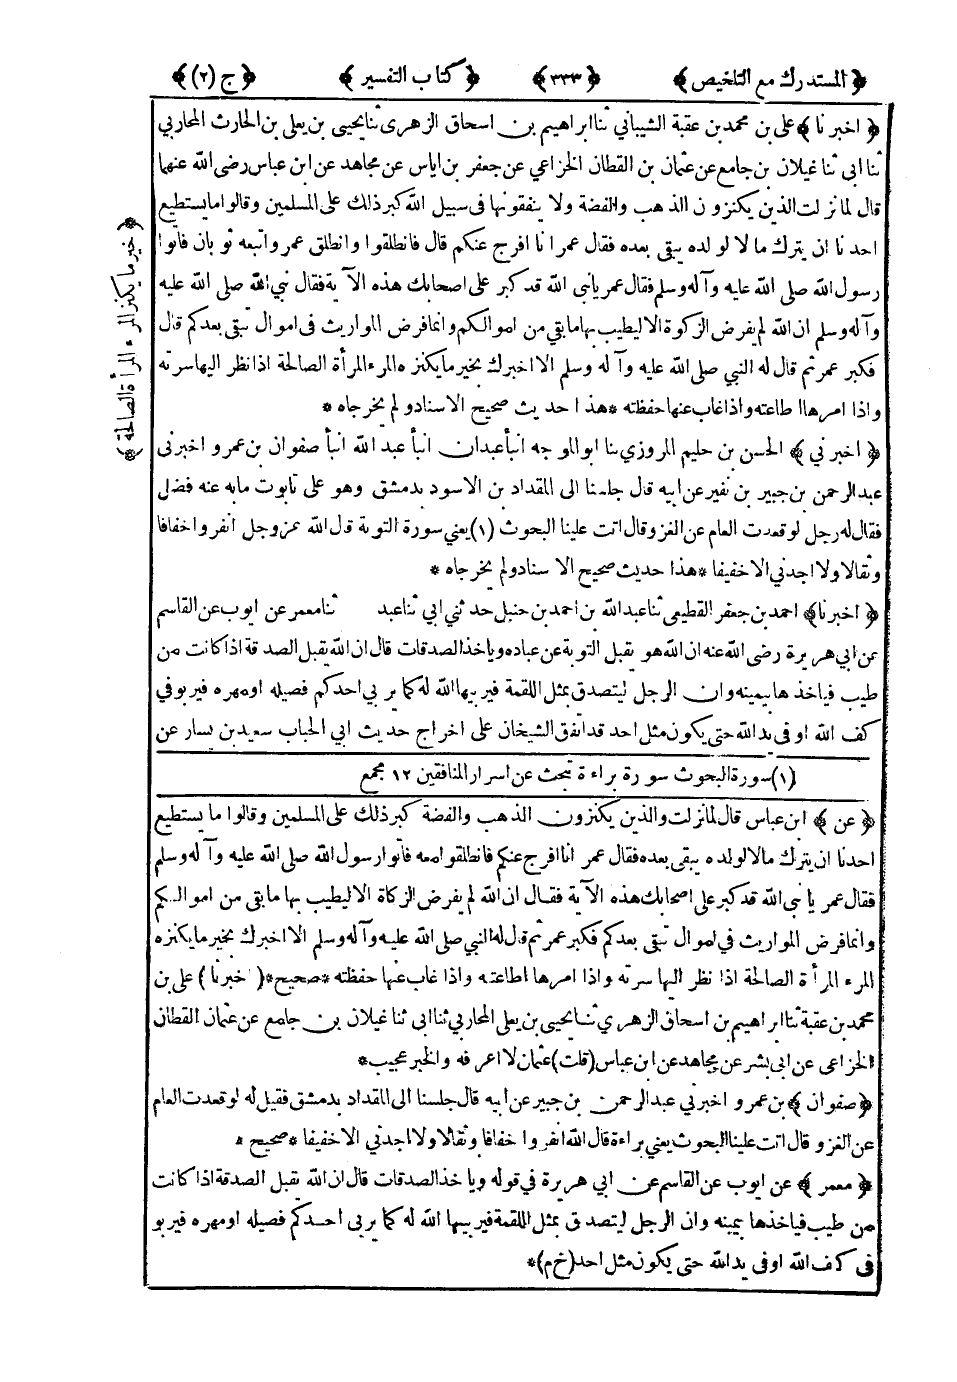 ﴿المستدرك مع التلخيص﴾ ﴿٣٣٣﴾ ﴿كتاب التفسير﴾ ﴿ج (٢)﴾
﴿اخبرنا﴾ على بن محمد بن عقبة الشيباني ثنا ابراهيم بن اسحاق الزهرى ثنا يحيى بن يعلى بن الحارث المحاربي
ثنا ابى ثنا غيلان بن جامع عن عثمان بن القطان الخزاعي عن جعفر بن اياس عن مجاهد عن ابن عباس رضى الله عنهما
قال لما نزلت الذين يكنزون الذهب والفضة ولا ينفقونها فى سبيل الله كبر ذلك على المسلمين وقالوا ما يستطيع
احدنا ان يترك مالا لولده يبقى بعده فقال عمر انا افرج عنكم قال فانطلقوا وانطلق عمر واتبعه ثوبان فاتوا
رسول الله صلى الله عليه وآله وسلم فقال عمر يا نبى الله قد كبر على اصحابك هذه الآية فقال نبي الله صلى الله عليه
وآله وسلم ان الله لم يفرض الزكوة الا ليطيب بها ما بقي من اموالكم وانما فرض المواريث فى اموال تبقى بعدكم قال
فكبر عمر ثم قال له النبي صلى الله عليه وآله وسلم الا اخبرك بخير ما يكنزه المرء المرأة الصالحة اذا نظر اليها سرته
واذا امرها اطاعته واذا غاب عنها حفظته * هذا حديث صحيح الاسناد ولم يخرجاه *
﴿خير ما يكنز المرء المرأة الصالحة﴾
﴿اخبرني﴾ الحسن بن حليم المروزي بنا ابو الموجه انبأ عبدان انبأ عبد الله انبأ صفوان بن عمرو اخبرنى
عبد الرحمن بن جبير بن نفير عن ابيه قال جلسنا الى المقداد بن الاسود بدمشق وهو على تابوت مابه عنه فضل
فقال له رجل لو قعدت العام عن الغزو قال اتت علينا البحوث (١) يعني سورة التوبة قال الله عز وجل انفروا خفافا
وثقالا ولا اجدني الا خفيفا * هذا حديث صحيح الاسناد ولم يخرجاه *
﴿اخبرنا﴾ احمد بن جعفر القطيعى ثنا عبد الله بن احمد بن حنبل حدثني ابي ثنا عبد ثنا معمر عن ايوب عن القاسم
عن ابي هريرة رضى الله عنه ان الله هو يقبل التوبة عن عباده وياخذ الصدقات قال ان الله يقبل الصدقة اذا كانت من
طيب فياخذها بيمينه وان الرجل ليتصدق بمثل اللقمة فيربيها الله له كما يربي احدكم فصيله او مهره فيربو في
كف الله او فى يد الله حتى يكون مثل احد قد اتفق الشيخان على اخراج حديث ابي الحباب سعيد بن يسار عن
(١) سورة البحوث سورة براءة تبحث عن اسرار المنافقين ١٢ مجمع
﴿عن﴾ ابن عباس قال لما نزلت والذين يكنزون الذهب والفضة كبر ذلك على المسلمين وقالوا ما يستطيع
احدنا ان يترك مالا لولده يبقى بعده فقال عمر انا افرج عنكم فانطلقوا معه فاتوا رسول الله صلى الله عليه وآله وسلم
فقال عمر يا نبى الله قد كبر على اصحابك هذه الآية فقال ان الله لم يفرض الزكاة الا ليطيب بها ما بقى من اموالكم
وانما فرض المواريث في اموال تبقى بعدكم فكبر عمر ثم قال له النبي صلى الله عليه وآله وسلم الا اخبرك بخير ما يكنزه
المرء المرأة الصالحة اذا نظر اليها سرته واذا امرها اطاعته واذا غاب عنها حفظته * صحيح * (اخبرنا) على بن
محمد بن عقبة ثنا ابراهيم بن اسحاق الزهري ثنا يحيى بن يعلى المحاربي ثنا ابى ثنا غيلان بن جامع عن عثمان القطان
الخزاعى عن ابى بشر عن مجاهد عن ابن عباس (قلت) عثمان لا اعرفه والخبر عجيب *
﴿صفوان﴾ بن عمرو اخبرني عبد الرحمن بن جبير عن ابيه قال جلسنا الى المقداد بدمشق فقيل له لو قعدت العام
عن الغزو قال اتت علينا البحوث يعني براءة قال الله انفروا خفافا وثقالا ولا اجدني الا خفيفا * صحيح *
﴿معمر﴾ عن ايوب عن القاسم عن ابي هريرة في قوله وياخذ الصدقات قال ان الله يقبل الصدقة اذا كانت
من طيب فياخذها بيمينه وان الرجل ليتصدق بمثل اللقمة فيربيها الله له كما يربى احدكم فصيله او مهره فيربو
فى كف الله او فى يد الله حتى يكون مثل احد (خ م) *